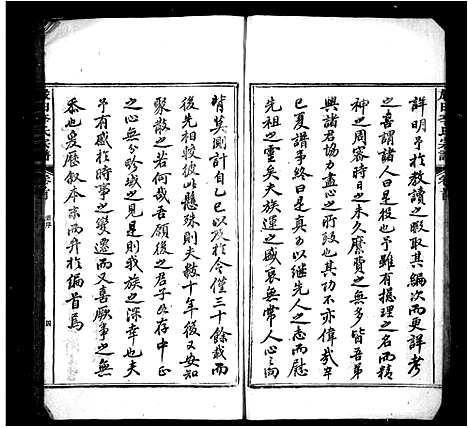 詳明予於教讀之暇取其編次而更詳考
之喜謂諸人曰是役也予雖有總理之名而精
神之周密時日之未久糜費之無多皆吾弟
興諸君協力盡心之所致也其功不亦偉哉辛
巳夏譜事終曰是真可以繼先人之志而慰
先祖之靈矣夫族運之盛衰無常人心之向
背莫測計自乙巳以致於今僅三十餘載而
後先相較彼此懸殊則夫數十年後又安知
聚散之若何哉吾願後之君子心存中正
之心無分畛域之見是則我族之深幸也夫
予有感於時事之變遷而又喜厥事之無
忝也爰歷叙本末而弁於編首焉
李氏宗譜
卷首
四